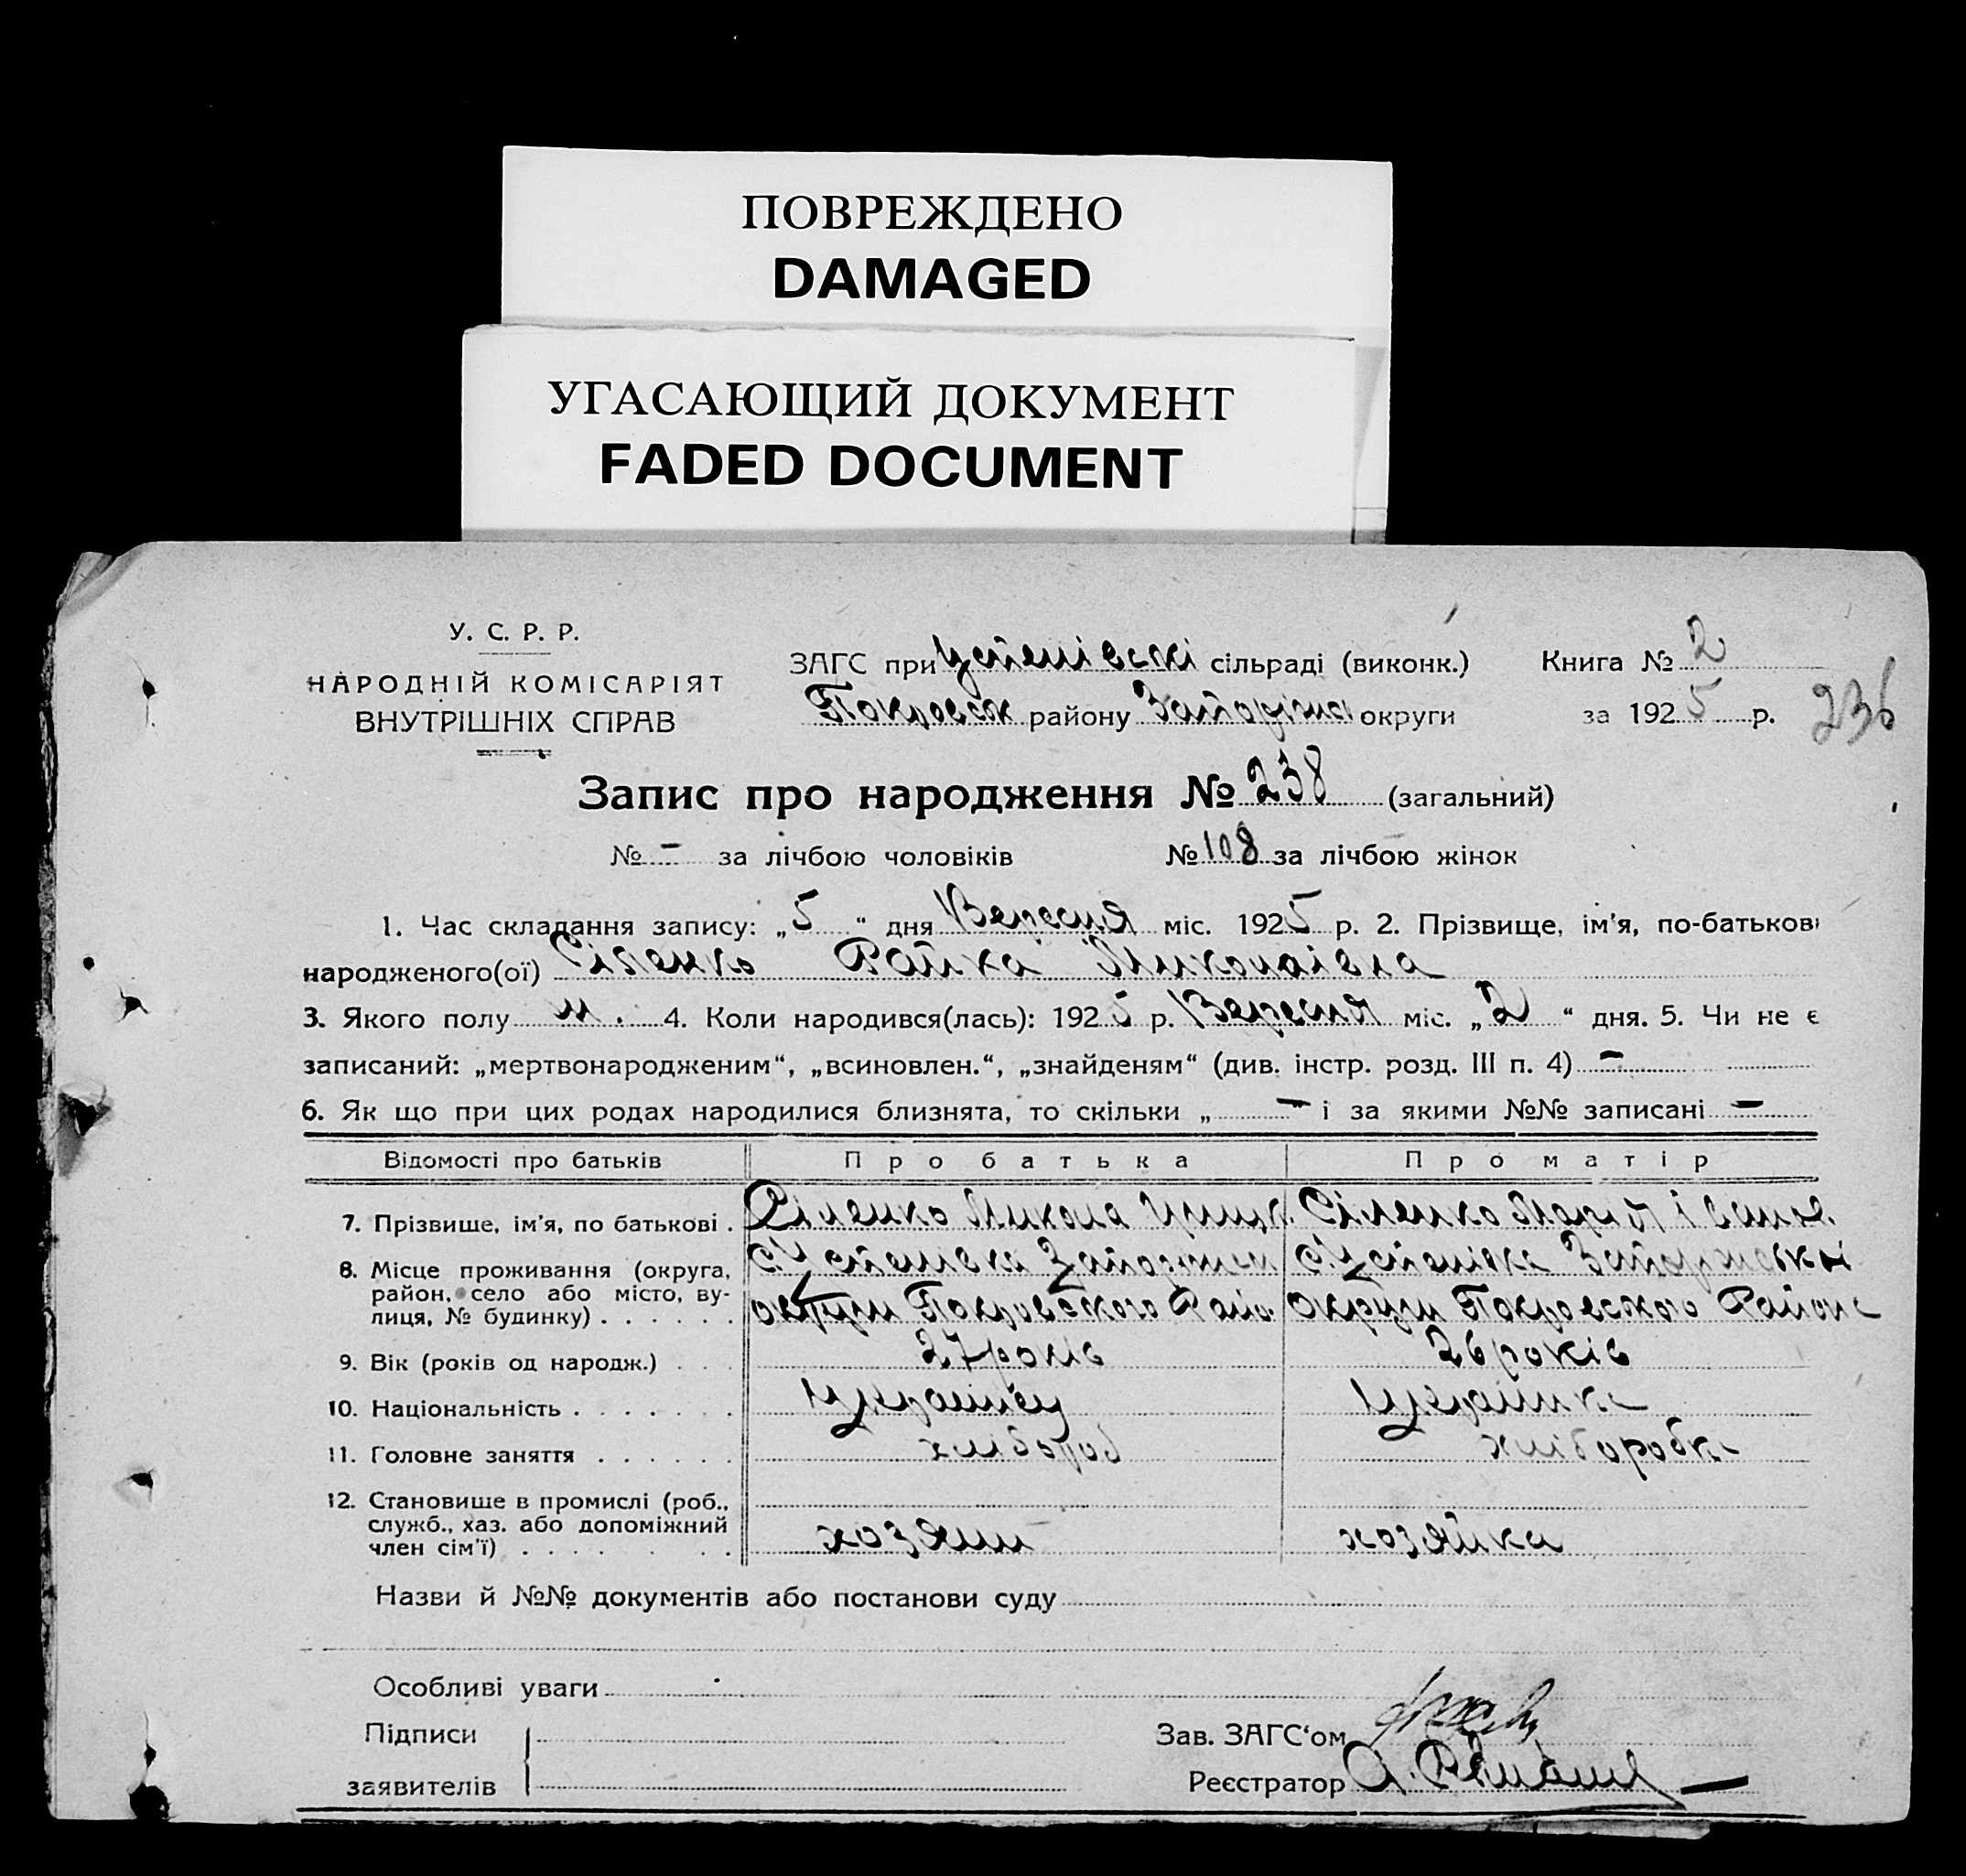 ПОВРЕЖДЕНО
DAMAGED
УГАСАЮЩИЙ ДОКУМЕНТ
FADED DOCUMENT
У. С. Р. Р.
НАРОДНІЙ КОМІСАРІЯТ
ВНУТРІШНІХ СПРАВ
ЗАГС при сільраді (виконк.)
Покровськ району округи
Книга № 2
за 1925 р.
236
Запис про народження № 238 (загальний)
№ - за лічбою чоловіків № 108 за лічбою жінок
1. Час складання запису: „5“ дня Вересня міс. 1925 р. 2. Прізвище, ім'я, по-батькові
народженого(ої) Сіленко Миколаівна
3. Якого полу 4. Коли народився(лась): 1925 р. Вересня міс. „2“ дня. 5. Чи не є
записаний: „мертвонародженим“, „всиновлен.“, „знайденям“ (див. інстр. розд. III п. 4) -
6. Як що при цих родах народилися близнята, то скільки „ - “ і за якими №№ записані -
Відомості про батьків Про батька Про матір
7. Прізвище, ім'я, по батькові . Сіленко Микола Сіленко Марія
8. Місце проживання (округа,
район, село або місто, ву-
лиця, № будинку) . . . . . . округи Покровського округи Покровского
9. Вік (років од народж.) . . . 27 років 26 років
10. Національність . . . . . . .
11. Головне заняття . . . . . . хлібороб хліборобка
12. Становише в промислі (роб.,
служб., хаз. або допоміжний
член сім'ї) . . . . . . хозяин хозяйка
Назви й №№ документів або постанови суду
Особливі уваги
Підписи
заявителів
Зав. ЗАГС'ом
Реєстратор